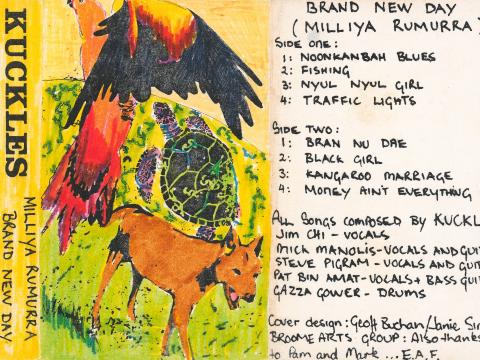 KUCKLES
MILLIYA RUMURRA
BRAND NEW DAY
BRAND NEW DAY
(MILLIYA RUMURRA)
SIDE ONE:
1: NOONKANBAH BLUES
2: FISHING
3: NYUL NYUL GIRL
4: TRAFFIC LIGHTS
SIDE TWO:
1: BRAN NU DAE
2: BLACK GIRL
3: KANGAROO MARRIAGE
4: MONEY AIN'T EVERYTHING
All SONGS COMPOSED BY KUCKL
JIM CHI - VOCALS
MICK MANOLIS - VOCALS AND GUI
STEVE PIGRAM - VOCALS AND GUIT
PAT BIN AMAT - VOCALS + BASS GUI
GAZZA GOWER - DRUMS
Cover design: Geoff Buchan/Janie Sin
BROOME ARTS GROUP: Also thanks
to Pam and Mark ... E.A.F.